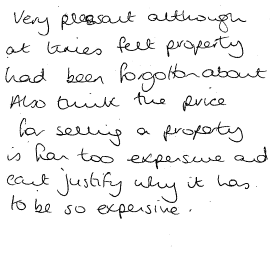 Very pleasant although
at times felt property
had been forgotten about
Also think the price
for selling a property
is far too expensive and
cant justify why it has
to be so expensive.